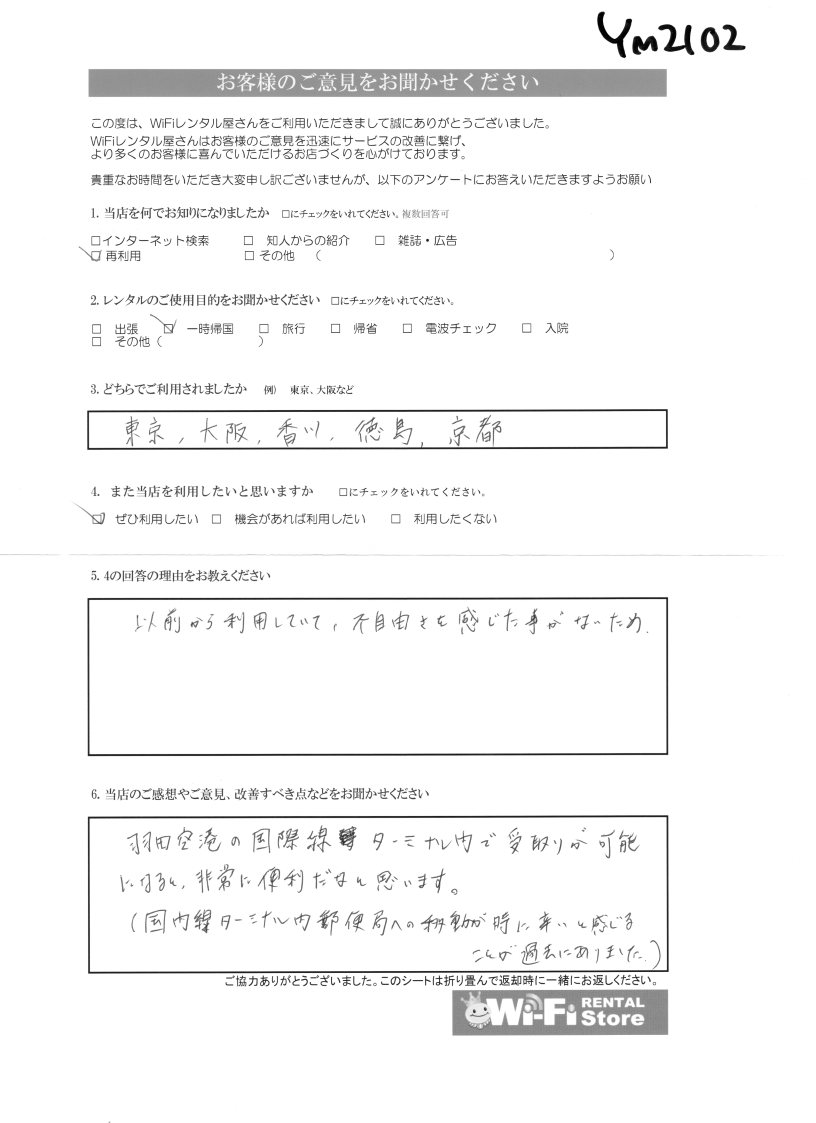 Ym2102
お客様のご意見をお聞かせください
この度は、WiFiレンタル屋さんをご利用いただきまして誠にありがとうございました。
WiFiレンタル屋さんはお客様のご意見を迅速にサービスの改善に繋げ、
より多くのお客様に喜んでいただけるお店づくりを心がけております。
貴重なお時間をいただき大変申し訳ございませんが、以下のアンケートにお答えいただきますようお願い
1. 当店を何でお知りになりましたか □にチェックをいれてください。複数回答可
□インターネット検索 □ 知人からの紹介 □ 雑誌・広告
☑ 再利用 □ その他 ( )
2. レンタルのご使用目的をお聞かせください □にチェックをいれてください。
□ 出張 ☑ 一時帰国 □ 旅行 □ 帰省 □ 電波チェック □ 入院
□ その他 ( )
3. どちらでご利用されましたか 例) 東京、大阪など
東京, 大阪, 香川, 徳島, 京都
4. また当店を利用したいと思いますか □にチェックをいれてください。
☑ ぜひ利用したい □ 機会があれば利用したい □ 利用したくない
5. 4の回答の理由をお教えください
以前から利用していて, 不自由さを感じた事がないため.
6. 当店のご感想やご意見、改善すべき点などをお聞かせください
羽田空港の国際線ターミナル内で受取りが可能
になると, 非常に便利だなと思います。
(国内線ターミナル内郵便局への移動が時に辛いと感じる
ことが過去にありました.)
ご協力ありがとうございました。このシートは折り畳んで返却時に一緒にお返しください。
Wi-Fi RENTAL Store